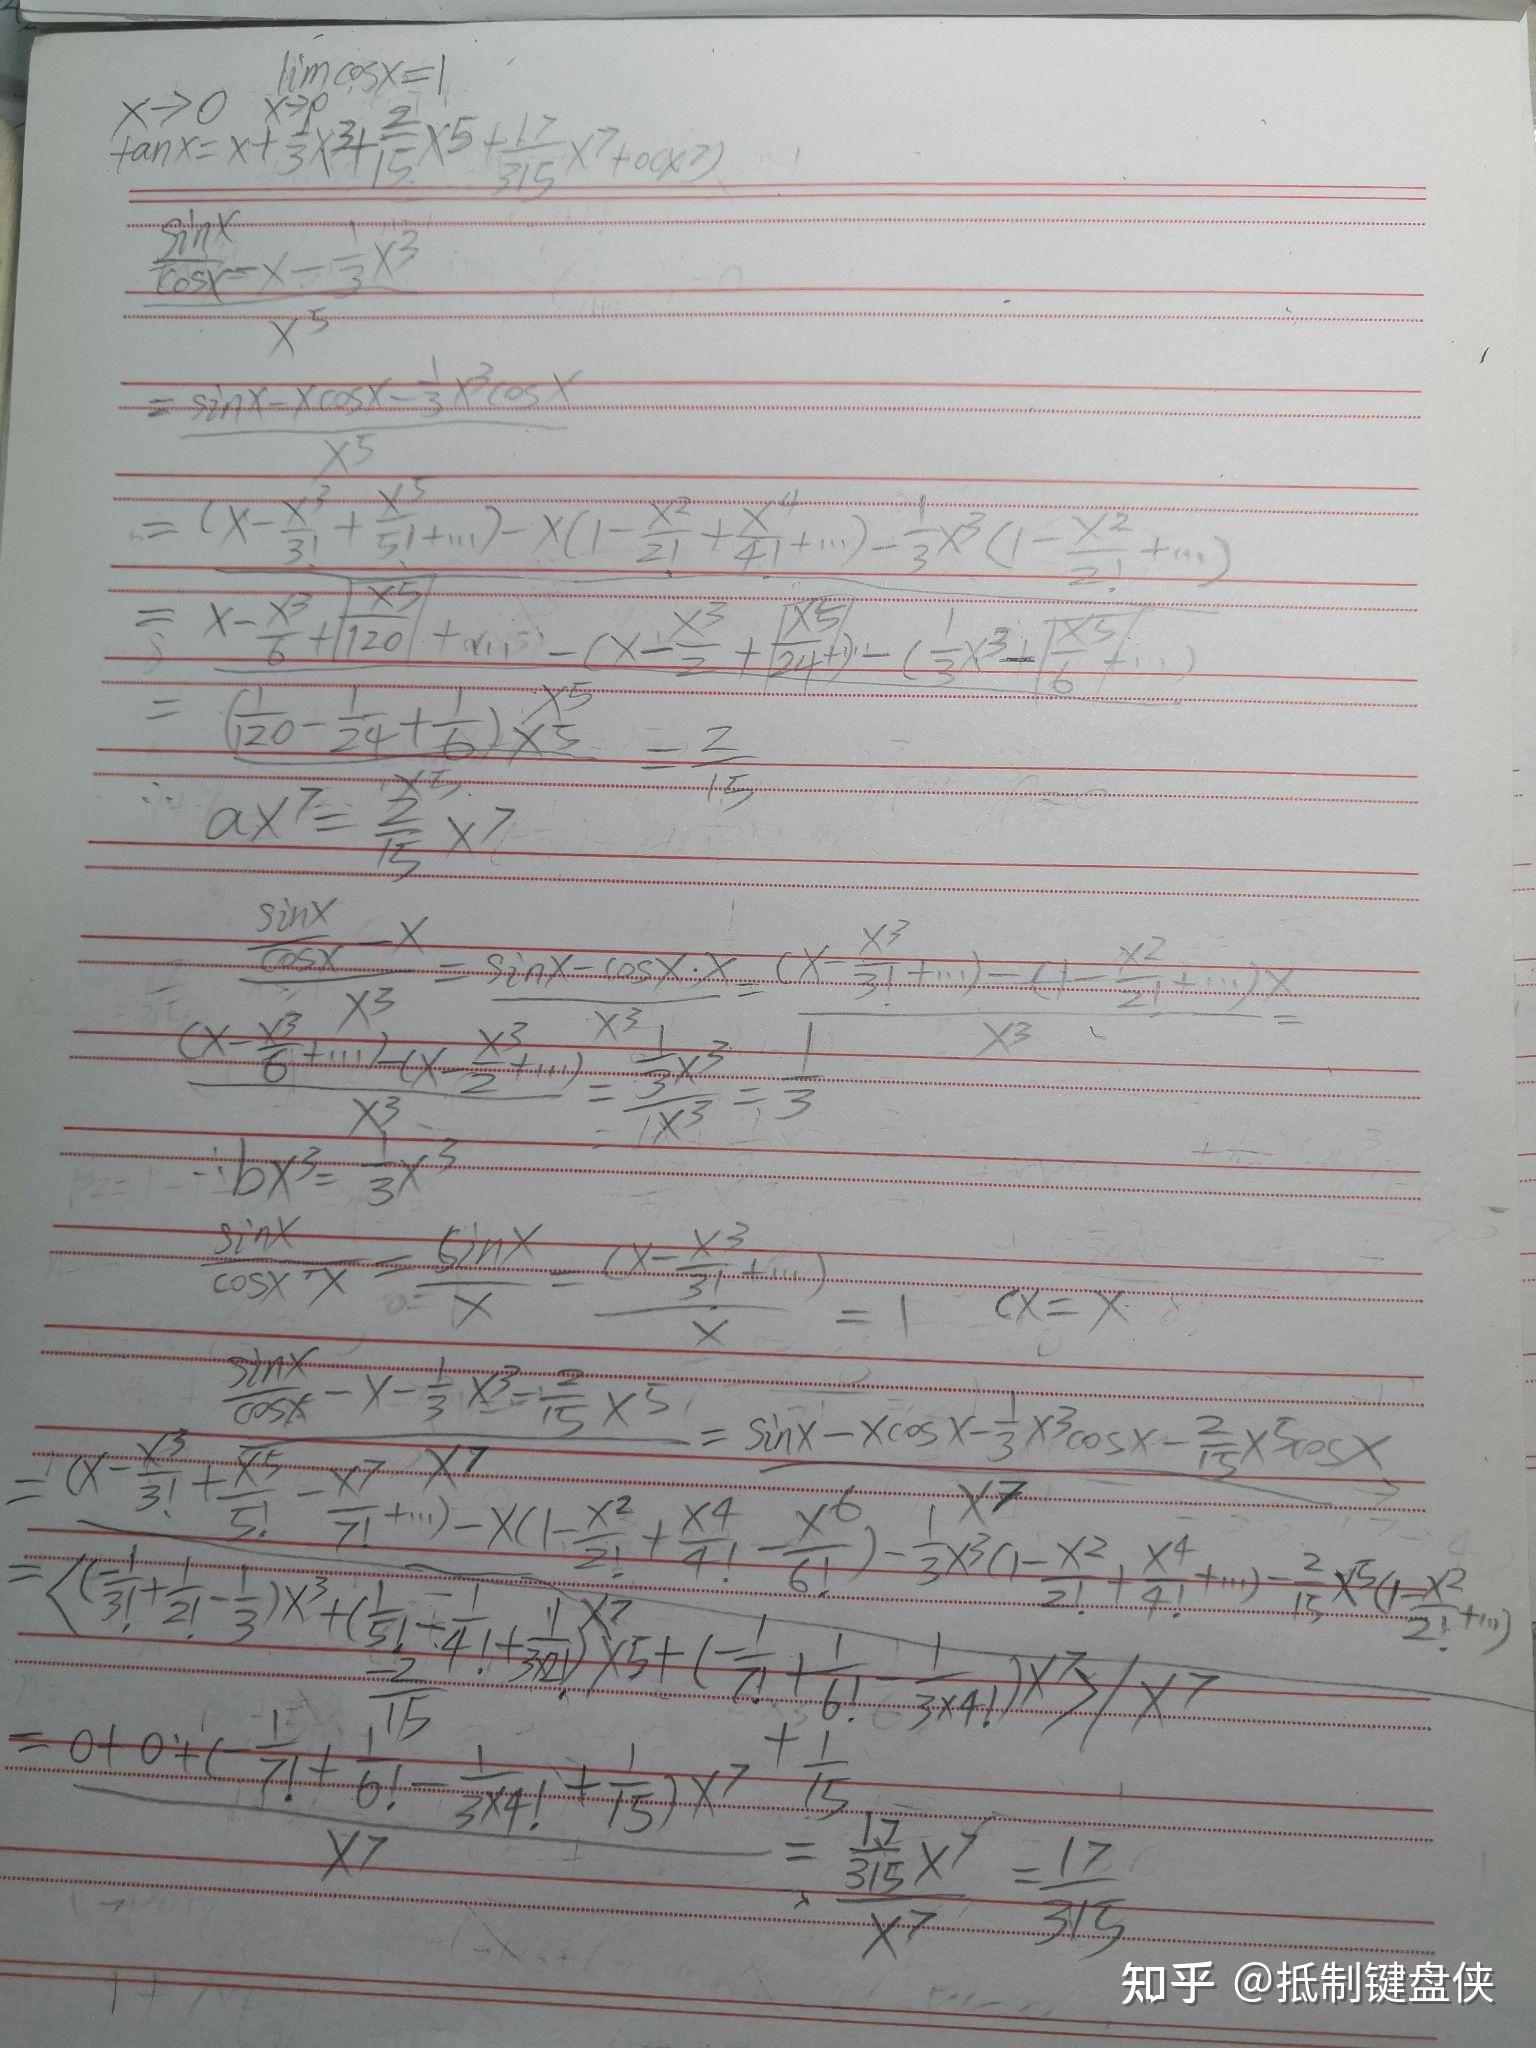 lim cosx=1
x→0 x→0
tanx=x+1/3x³+2/15x⁵+17/315x⁷+o(x⁷)
(sinx/cosx-x-1/3x³)/x⁵
=(sinx-xcosx-1/3x³cosx)/x⁵
=(x-x³/3!+x⁵/5!+...)-x(1-x²/2!+x⁴/4!+...)-1/3x³(1-x²/2!+...)
=x-x³/6+x⁵/120+...-(x-x³/2+x⁵/24+...)-(1/3x³-x⁵/6+...)
x⁵
=(1/120-1/24+1/6)x⁵/x⁵=2/15
∴ax⁷=2/15x⁷
(sinx/cosx-x)/x³=(sinx-cosx·x)/x³=((x-x³/3!+...)-(1-x²/2!+...)x)/x³=
((x-x³/6+...)-(x-x³/2+...))/x³=(1/3x³)/(1x³)=1/3
∴bx³=1/3x³
sinx/(cosx·x)=sinx/x=(x-x³/3!+...)/x=1 cx=x
(sinx/cosx-x-1/3x³=2/15x⁵)/x⁷=(sinx-xcosx-1/3x³cosx-2/15x⁵cosx)/x⁷
=(x-x³/3!+x⁵/5!-x⁷/7!+...)-x(1-x²/2!+x⁴/4!-x⁶/6!)-1/3x³(1-x²/2!+x⁴/4!+...)-2/15x⁵(1-x²/2!+...)
x⁷
=<(-1/3!+1/2!-1/3)x³+(1/5!-1/4!+1/3×2!)x⁵+(-1/7!+1/6!-1/3×4!)x⁷>/x⁷
-2/15
+1/15
=(0+0+(-1/7!+1/6!-1/3×4!+1/15)x⁷)/x⁷
=(17/315x⁷)/x⁷=17/315
知乎 @抵制键盘侠